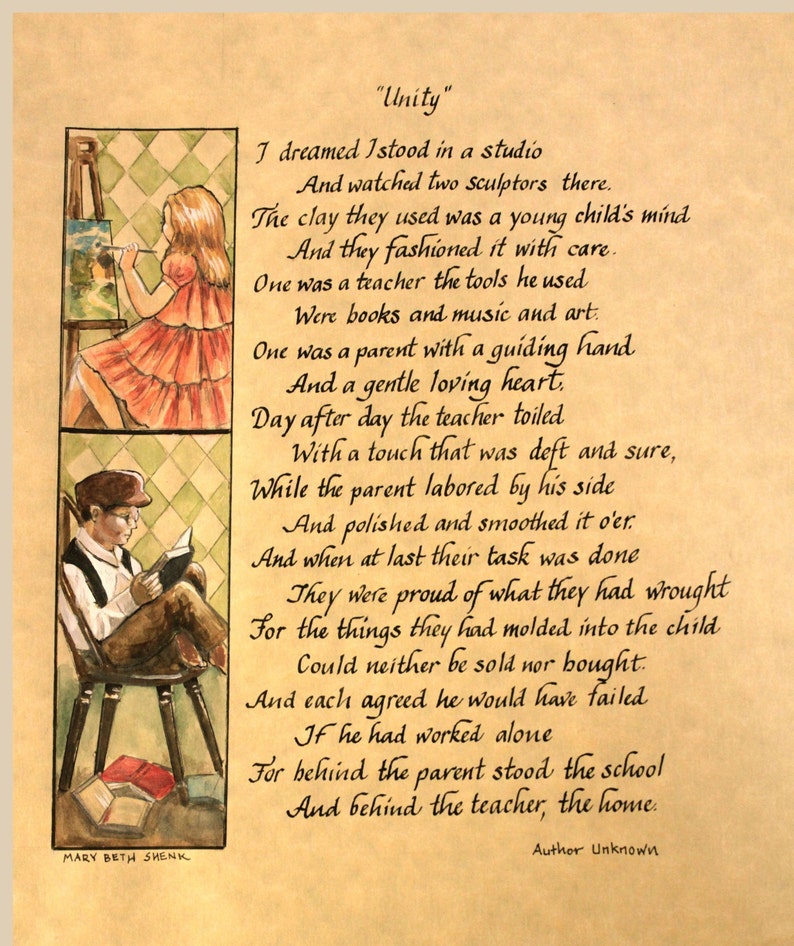 "Unity"
I dreamed I stood in a studio
And watched two sculptors there.
The clay they used was a young child's mind
And they fashioned it with care.
One was a teacher the tools he used
Were books and music and art.
One was a parent with a guiding hand
And a gentle loving heart.
Day after day the teacher toiled
With a touch that was deft and sure,
While the parent labored by his side
And polished and smoothed it o'er.
And when at last their task was done
They were proud of what they had wrought
For the things they had molded into the child
Could neither be sold nor bought.
And each agreed he would have failed
If he had worked alone
For behind the parent stood the school
And behind the teacher, the home.
Author Unknown
MARY BETH SHENK